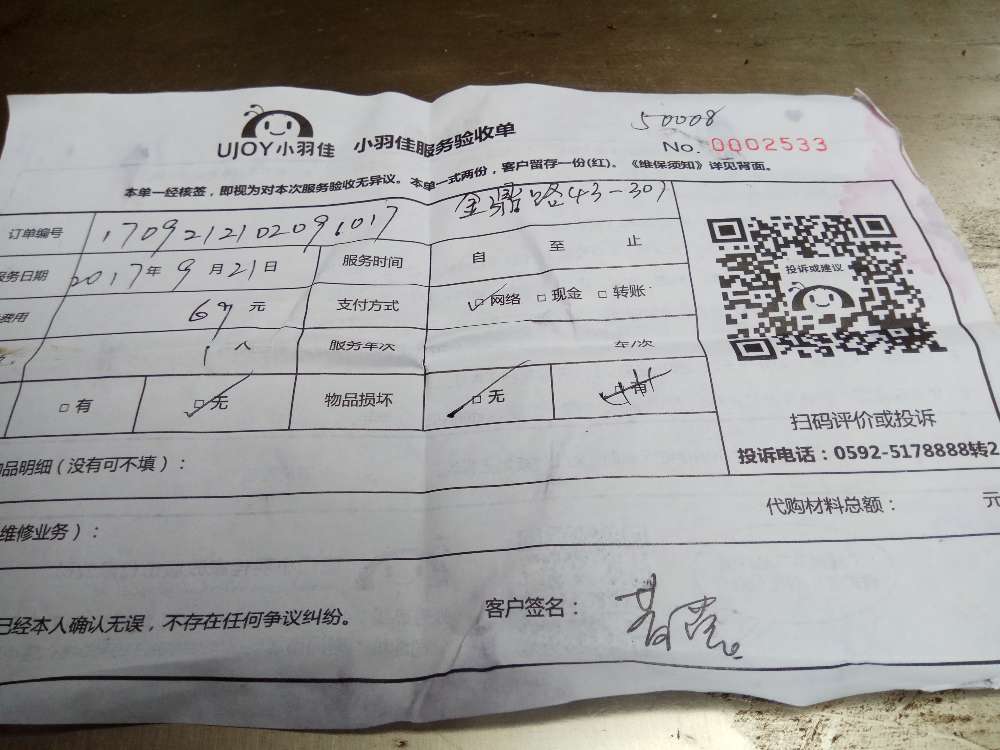 50008
UJOY小羽佳 小羽佳服务验收单 No. 0002533
本单一经核签，即视为对本次服务验收无异议。本单一式两份，客户留存一份(红)。《维保须知》详见背面。
路43-301
订单编号 1709212102091017
服务日期 2017年9月21日 服务时间 自 至 止
费用 69元 支付方式 ☑网络 □现金 □转账
1人 服务年次 年/次
□有 ☑无 物品损坏 ☑无 □有
投诉或建议
扫码评价或投诉
投诉电话：0592-5178888转2
品明细（没有可不填）：
代购材料总额： 元
维修业务）：
已经本人确认无误，不存在任何争议纠纷。
客户签名：